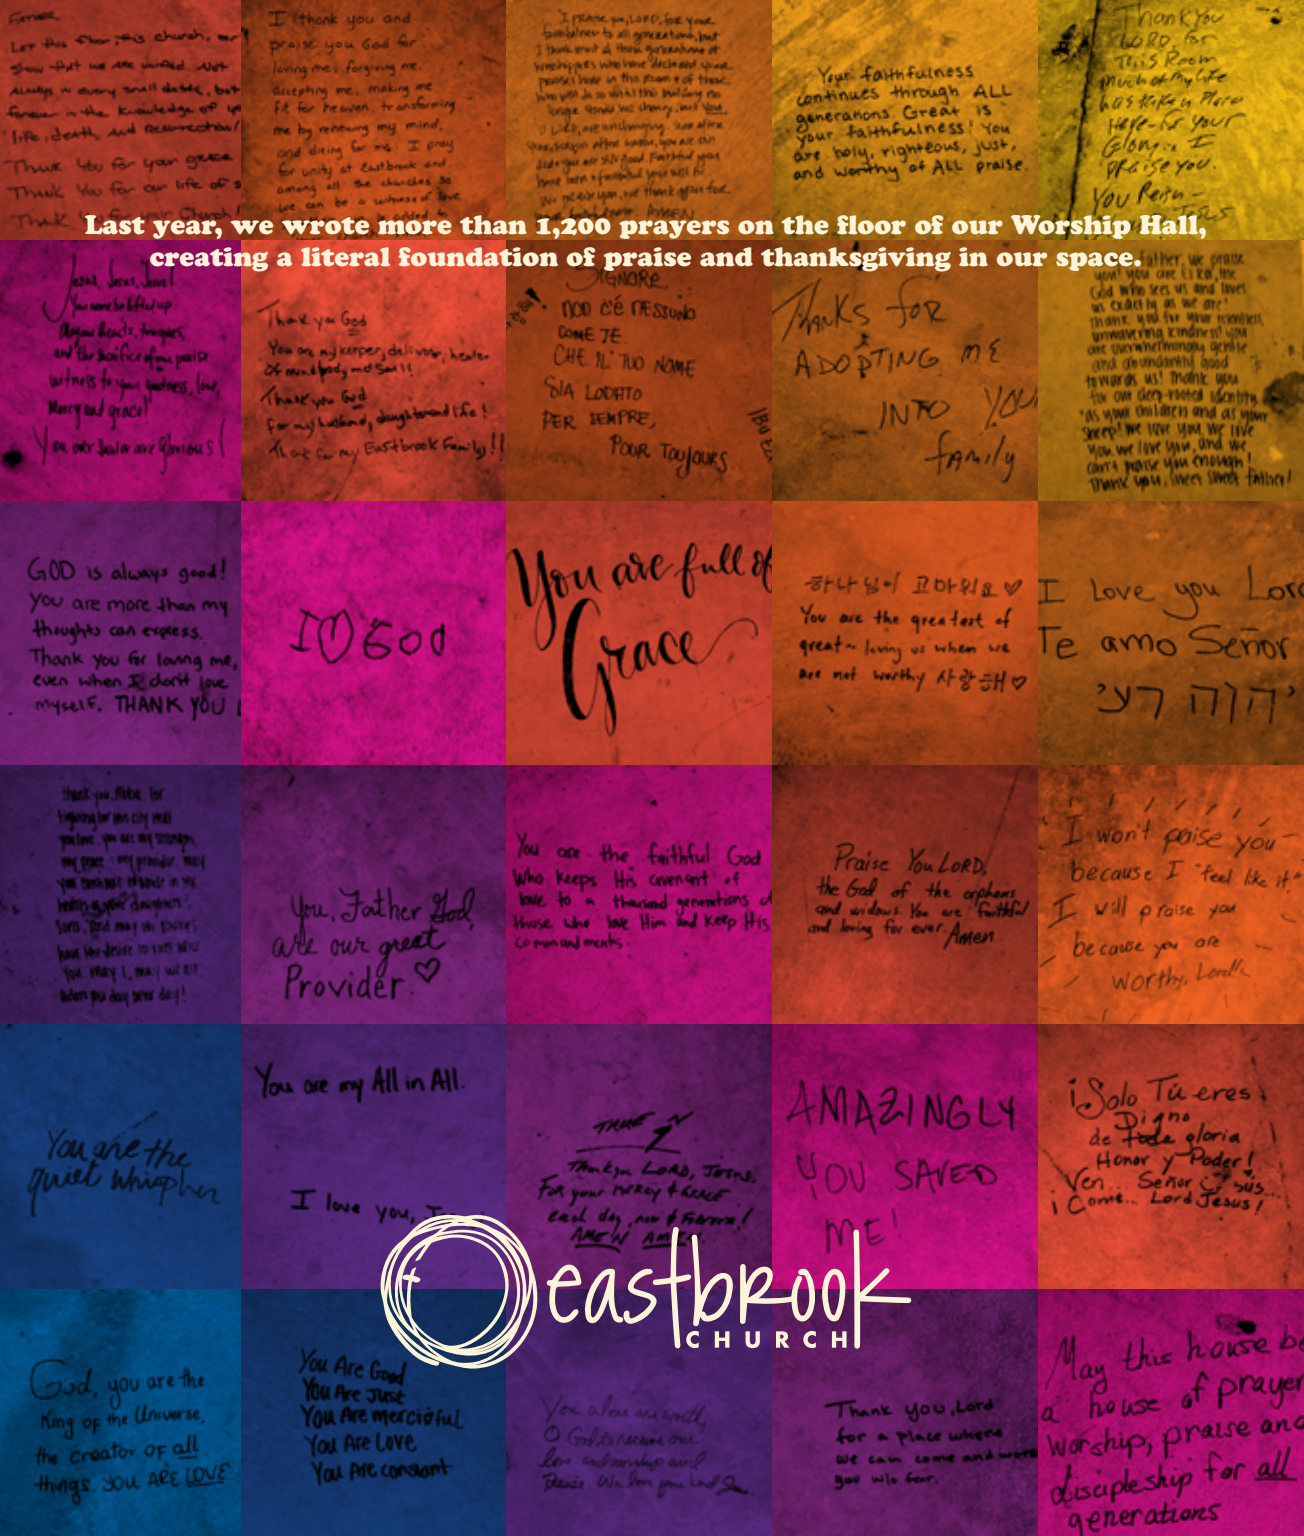 Father,
Let this floor, this church, our
show that we are unified. Not
Always in every small detail, but
forever in the knowledge of yo
life, death, and resurrection!
Thank You for your grace
Thank You for our life of s
Thank You for our Church!
I thank you and
praise you God for
loving me, forgiving me,
accepting me, making me
fit for heaven, transforming
me by renewing my mind,
and dieing for me. I pray
for unity at Eastbrook and
among all the churches so
we can be a witness of love
I praise you, LORD, for your
faithfulness to all generations, but
I think most of those generations of
worshippers who have declared your
praises here in this room & of those
who will do so until this building no
longer stands. We change, but You,
O LORD, are unchanging.
We praise you, we thank you for
AMEN
Your faithfulness
continues through ALL
generations. Great is
your faithfulness! You
are holy, righteous, just,
and worthy of ALL praise.
Thank you
LORD, for
This Room
Much of my life
has taken Place
Here - for Your
Glory... I
praise you.
You Reign -
Last year, we wrote more than 1,200 prayers on the floor of our Worship Hall,
creating a literal foundation of praise and thanksgiving in our space.
Jesus, Jesus, Jesus!
You are lifted up
witness to your goodness, love,
Mercy and grace!
You our Savior are glorious!
Thank you God
You are my keeper, deliverer, healer
Of mind body and Soul!
Thank you God
for my husband, daughter and life!
Thank for my Eastbrook Family!!
SIGNORE,
NON C'É NESSUNO
COME TE.
CHE IL TUO NOME
SIA LODATO
PER SEMPRE,
POUR TOUJOURS.
Thanks for
ADOPTING ME
INTO YOUR
family
Father, we praise
you! you are El Roi, the
God who sees us and loves
us exactly as we are!
Thank you for your relentless,
unwavering kindness! you
are overwhelmingly gentle
and abundantly good
towards us! Thank you
for our deep-rooted identity
"as your children and as your
sheep! We love you, we love
you, we love you, and we
can't praise you enough!
Thank you, sweet sweet father!
GOD is always good!
You are more than my
thoughts can express.
Thank you for loving me,
even when I don't love
myself. THANK YOU
I ♡ God
You are full of
Grace
하나님이 고마워요 ♡
You are the greatest of
great~ loving us when we
are not worthy 사랑해 ♡
I love you Lord
Te amo Señor
יהוה רעי
thank you, Abba, for
fighting for
you love. you are my strength,
my peace, my provider. may
you continue to
sons, and may we always
have the desire to
adore you day after day!
you, Father God,
are our great
Provider. ♡
You are the faithful God
Who keeps His covenant of
love to a thousand generations of
those who love Him and keep His
commandments.
Praise You LORD,
the God of the orphans
and widows. You are faithful
and loving for ever. Amen
I won't praise you
because I "feel like it."
I will praise you
because you are
worthy, Lord!
You are the
quiet whispher
You are my All in All.
I love you,
Thank you LORD, JESUS.
For your MERCY & GRACE
each day, now & Forever!
AMEN AMEN
AMAZINGLY
YOU SAVED
ME!
¡Solo Tú eres
Digno
de toda gloria
Honor y Poder!
Ven... Señor Jesús...
¡Come... Lord Jesus!
eastbrook
CHURCH
God, you are the
King of the Universe,
the creator of all
things. YOU ARE LOVE
You Are Good
You Are Just
You Are merciful
You Are Love
You Are constant
You alone are worthy,
O God to receive our
love and worship and
Praise. We love you Lord
Thank you, Lord
for a place where
we can come and wors
you w/o fear.
May this house be
a house of prayer
worship, praise and
discipleship for all
generations